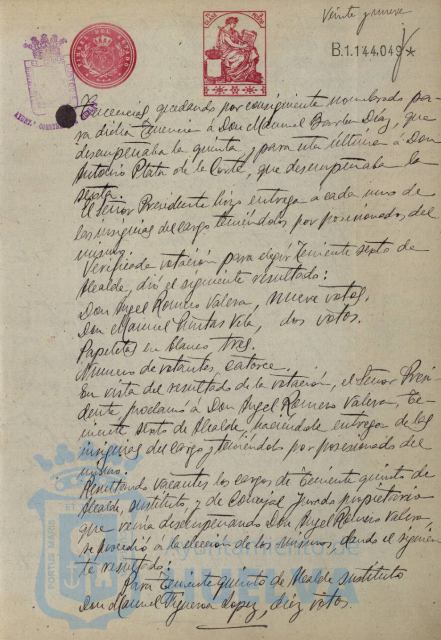 Veinte y nueve
B.1.144.049*
Tenencia, quedando por consiguiente nombrado pa-
ra dicha Tenencia á Don Manuel Barba Díaz, que
desempeñaba la quinta, y para esta última á Don
Antonio Plata de la Corte, que desempeñaba la
sexta.
El señor Presidente hizo entrega a cada uno de
las insignias del cargo teniéndolos por posesionados del
mismo.
Verificada votación para elegir Teniente sexto de
Alcalde, dió el siguiente resultado:
Don Angel Romero Valera, nueve votos.
Don Manuel Puntas Vela, dos votos.
Papeletas en blanco tres.
Número de votantes, catorce.
En vista del resultado de la votación, el Señor Presi-
dente proclamó a Don Angel Romero Valera, Te-
niente sexto de Alcalde, haciéndole entrega de las
insignias del cargo, teniéndolo por posesionado del
mismo.
Resultando vacantes los cargos de Teniente quinto de
Alcalde, sustituto y de Concejal Jurado propietario
que venia desempeñando Don Angel Romero Valera
se procedió á la elección de los mismos, dando el siguien-
te resultado:
Para Teniente quinto de Alcalde sustituto
Don Manuel Figueroa Lopez, diez votos
PORTUS MARIS
Ayuntamiento de
HUELVA